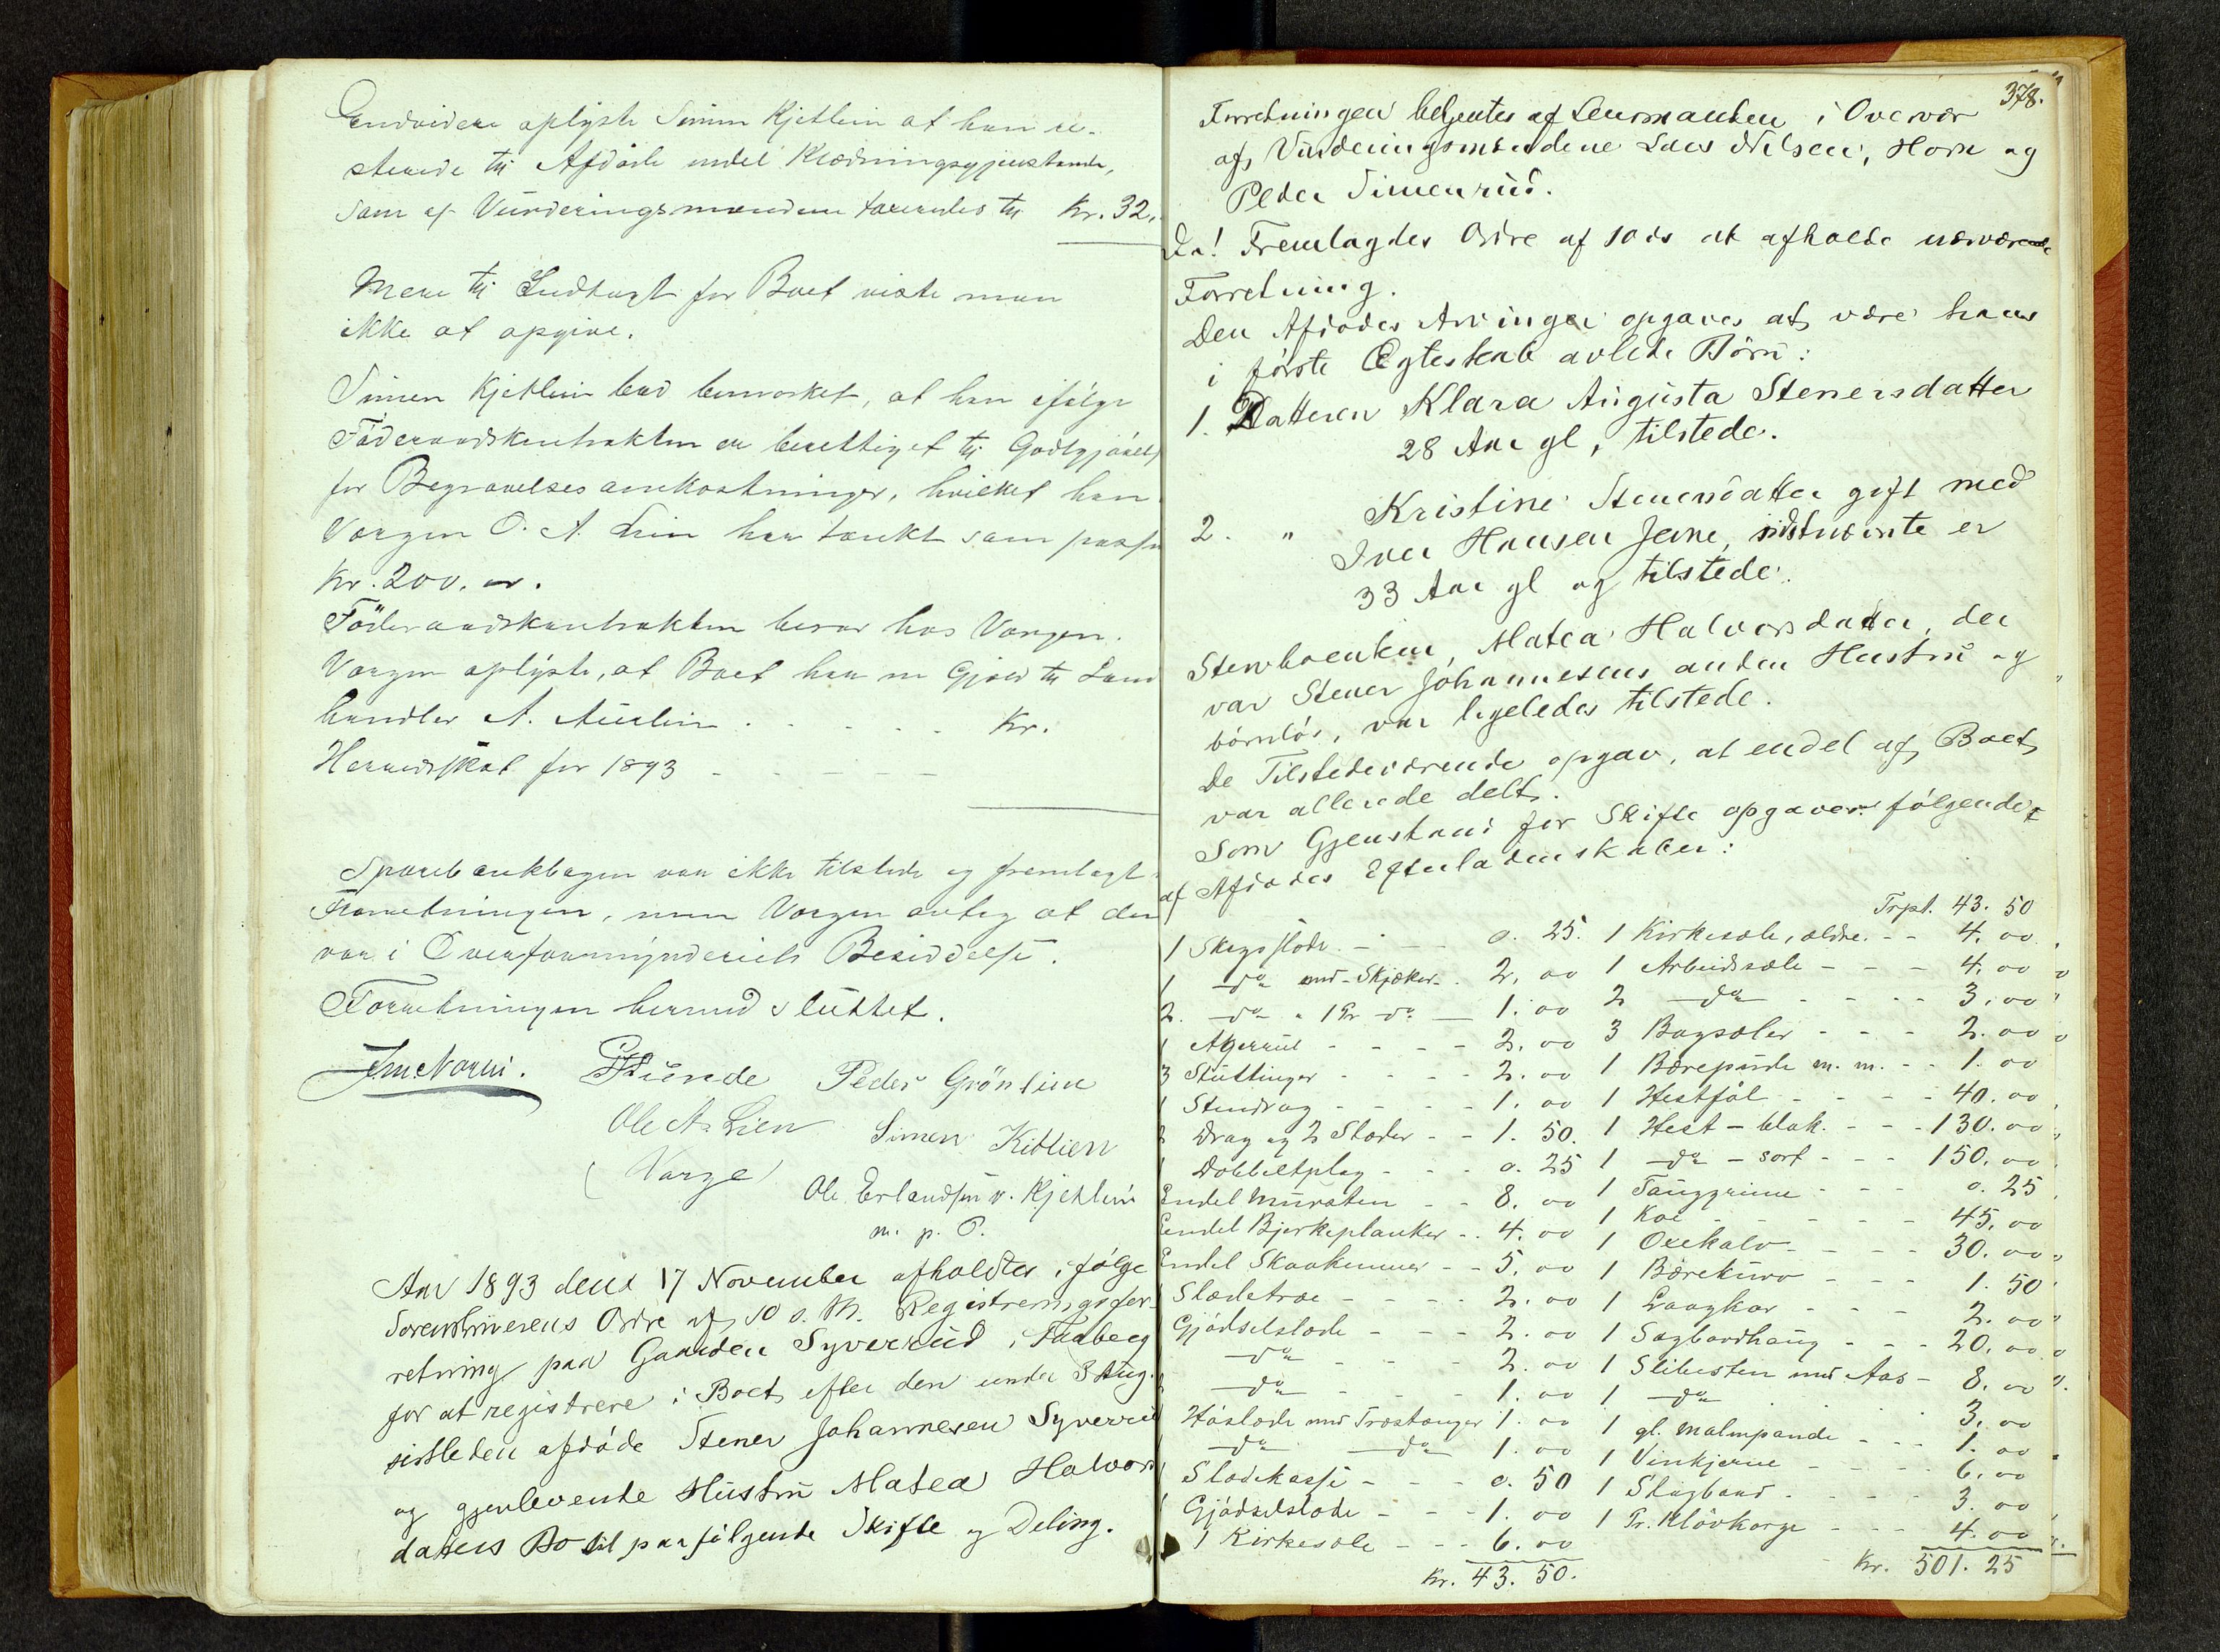 Endvidere oplyste Simen Kjetlien at han re-
sterede til Afdøde endel Klædningsgjenstande,
som af Vurderingsmændene taxeredes til Kr. 32.
Mere til Indtægt for Boet viste man
ikke at opgive.
Simen Kjetlien bad bemærket, at han ifølge
Föderaadskontrakten er berettiget til Godtgjörelse
for Begravelsesomkostninger, hvilket han
Værgen O. A. Lien har tænkt som passe
Kr. 200. oo.
Föderaadskontrakten beror hos Værgen.
Værgen oplyste, at Boet har en Gjæld til Land
handler A. Aulien . . . . . Kr.
Herredsskat for 1893 - - - - -
Sparebankbogen var ikke tilstede og fremlagt
Forretningen, men Værgen antog at den
var i Overformynderiets Besiddelse.
Forretningen hermed sluttet.
Peder Grönlien
Ole A. Lien Simen Kitlien
(Værge) Ole Erlandsen v. Kjetlien
m. p. P.
Aar 1893 den 17 November afholdtes ifølge
Sorenskriverens Ordre af 10 s. M. Registreringsfor-
retning paa Gaarden Syverrud i Faaberg
for at registrere i Boet efter den under 3 Aug.
sidstleden afdöde Stener Johannesen Syverrud
og gjenlevende Hustru Matea Halvors
datters Bo til paafølgende Skifte og Deling.
378.
Forretningen betjentes af Lensmanden i Overvær
af Vurderingsmændene Lars Nilsen, Horn og
Peder Simenrud.
Da! Fremlagdes Ordre af 10 ds at afholde nærværende
Forretning.
Den Afdödes Arvinger opgaves at være hans
i förste Ægteskab avlede Börn:
1. Datteren Klara Augusta Stenersdatter
28 Aar gl, tilstede.
2. " Kristine Stenersdatter gift med
Iver Hansen Jevne, sidstnævnte er
33 Aar gl og tilstede.
Stervboenken, Matea Halvorsdatter, der
var Stener Johannesens anden Hustru og
börnlös, var ligeledes tilstede.
De Tilstedeværende opgav, at endel af Boet
var allerede delt.
Som Gjenstand for Skifte opgaves følgende
af Afdödes Efterladenskaber:
Trpt. 43. 50
1 Skogsslæde - - - 0. 25.
1 do med Skjæker - 2. oo
2. do " 1 Pr do - 1. oo
1 Agerrul - - - - 2. oo
3 Stuttinger - - - - 2. oo
1 Stendrag - - - - 1. oo
1 Drag og 2 Stoder - - 1. 50.
1 Dobbeltplog - - - 0. 25
Endel Mursten - - 8. oo
Endel Bjerkeplanker - - 4. oo
Endel Skaakemner - - 5. oo
1 Slædetræ - - - - 2. oo
Gjödselslæde - - - 2. oo
do - - - 2. oo
do - - - 1. oo
Höslæde med Træstænger 1. oo
do do 1. oo
Slædekasse - - - 0. 50
Gjödselslæde - - - 1. oo
1 Kirkesæle - - - 6. oo
Kr. 43. 50.
1 Kirkesæle, ældre. - - 4. oo
1 Arbeidssæle - - - 4. oo
2 do - - - - 3. oo
3 Bogsæler - - - 2. oo
1 Bærepude m. m. - - 1. oo
1 Hestföl - - - - 40. oo
1 Hest - blak. - - - 130. oo
1 do - sort - - - 150. oo
1 Tauggrime - - - 0. 25
1 Koe - - - - - 45. oo
1 Oxekalv - - - - 30. oo
1 Bærekurv - - - 1. 50
1 Laagkar - - - - 2. oo
1 Sagbordhaug - - - 20. oo
1 Slibesten med Aas - 8. oo
1 do . . . 3. oo
1 gl. Malmpande - - - 1. oo
1 Vinkjerne - - - - 6. oo
1 Slagbord - - - - 3. oo
1 Pr. Klövkorge - - - 4. oo
Kr. 501. 25